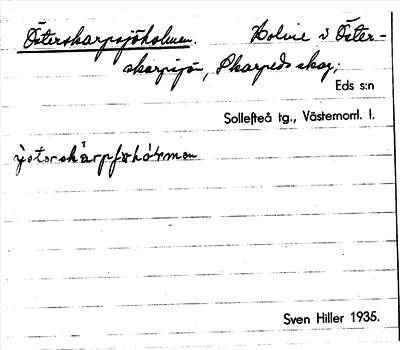 Österskarpsjöholmen. Holme i Öster-
skarpsjön, Skarpeds skog.
Eds s:n
Sollefteå tg., Västernorrl. l.
Sven Hiller 1935.